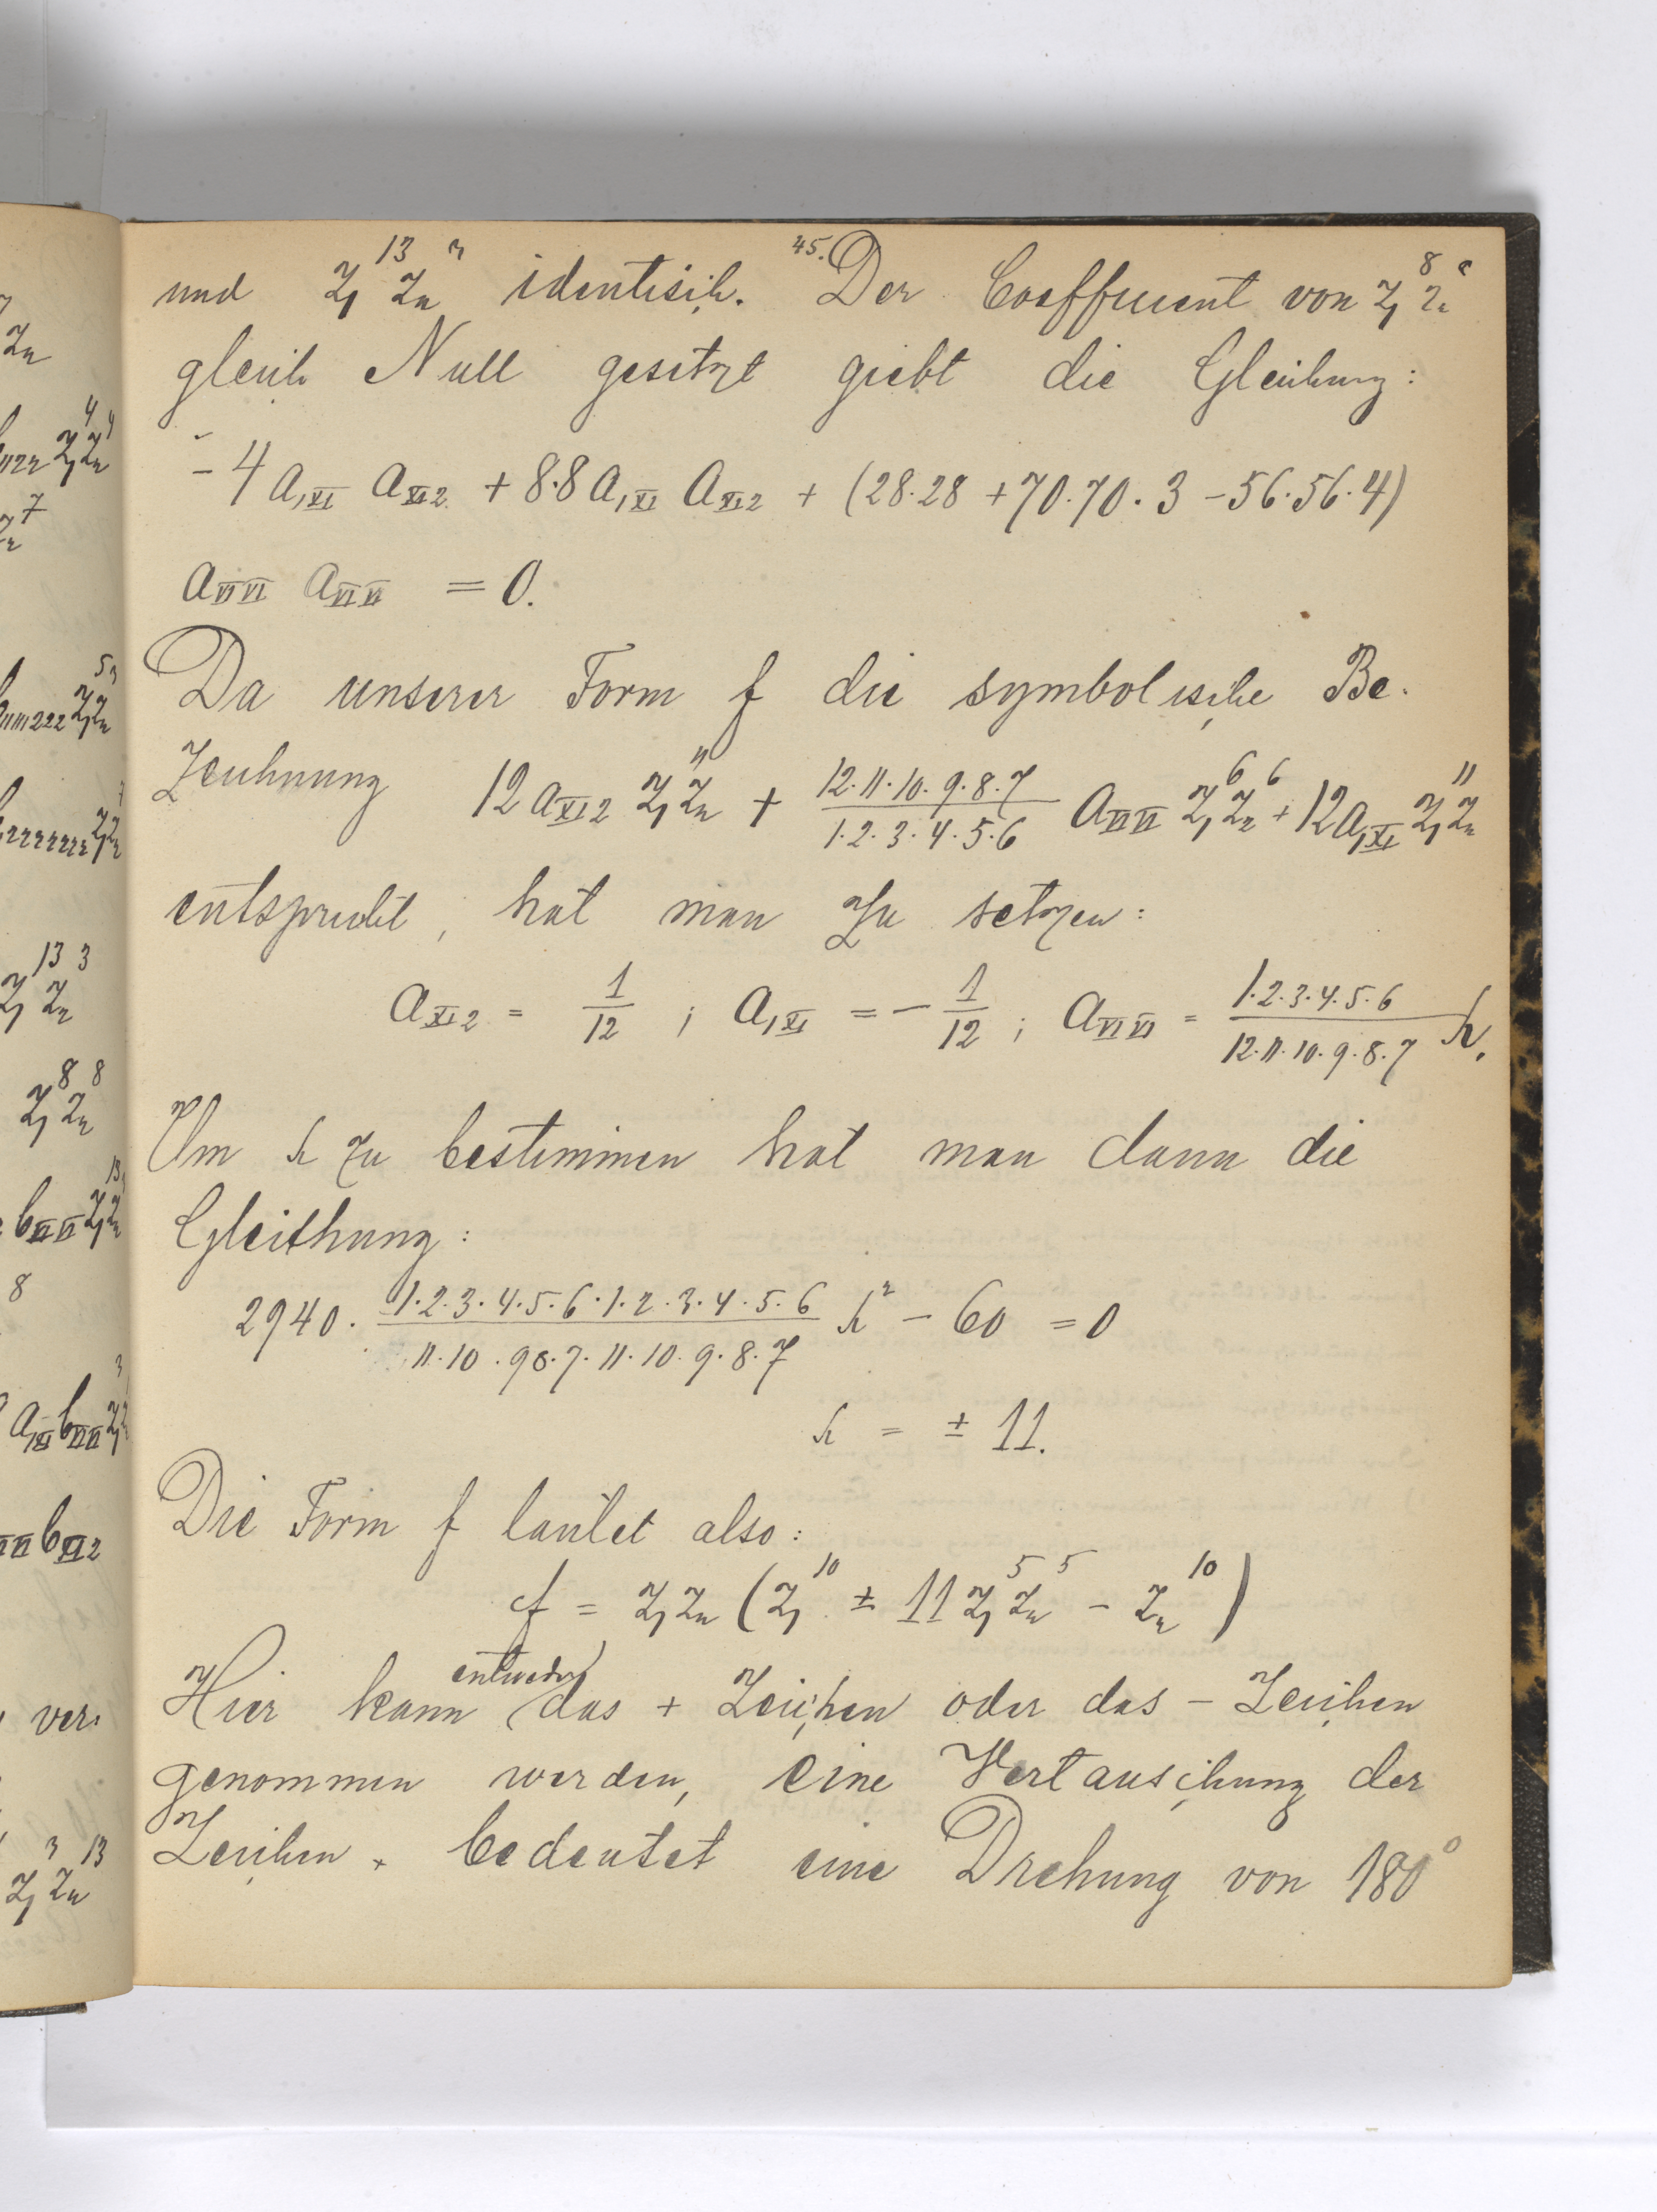 45.
und z₁¹³ z₂³ identisch. Der Coefficient von z₁⁸ z₂⁸
gleich Null gesetzt giebt die Gleichung:
- 4 a₁XI aXI2 + 8·8 a₁XI aXI2 + (28·28 + 70·70·3 - 56·56·4)
aVIVI aVIVI = 0.
Da unserer Form f die symbolische Be-
zeichnung 12 aXI2 z₁¹¹ z₂ + 12·11·10·9·8·7 / 1·2·3·4·5·6 aVIVI z₁⁶ z₂⁶ + 12 a₁XI z₁ z₂¹¹
entspricht, hat man zu setzen:
aXI2 = 1/12 ; a₁XI = - 1/12 ; aVIVI = 1·2·3·4·5·6 / 12·11·10·9·8·7 h.
Um h zu bestimmen hat man dann die
Gleichung:
2940 · 1·2·3·4·5·6·1·2·3·4·5·6 / 11·10·9·8·7·11·10·9·8·7 h² - 60 = 0
h = ± 11.
Die Form f lautet also:
f = z₁ z₂ (z₁¹⁰ ± 11 z₁⁵ z₂⁵ - z₂¹⁰)
Hier kann entweder das + Zeichen oder das - Zeichen
genommen werden, eine Vertauschung der
Zeichen bedeutet eine Drehung von 180°